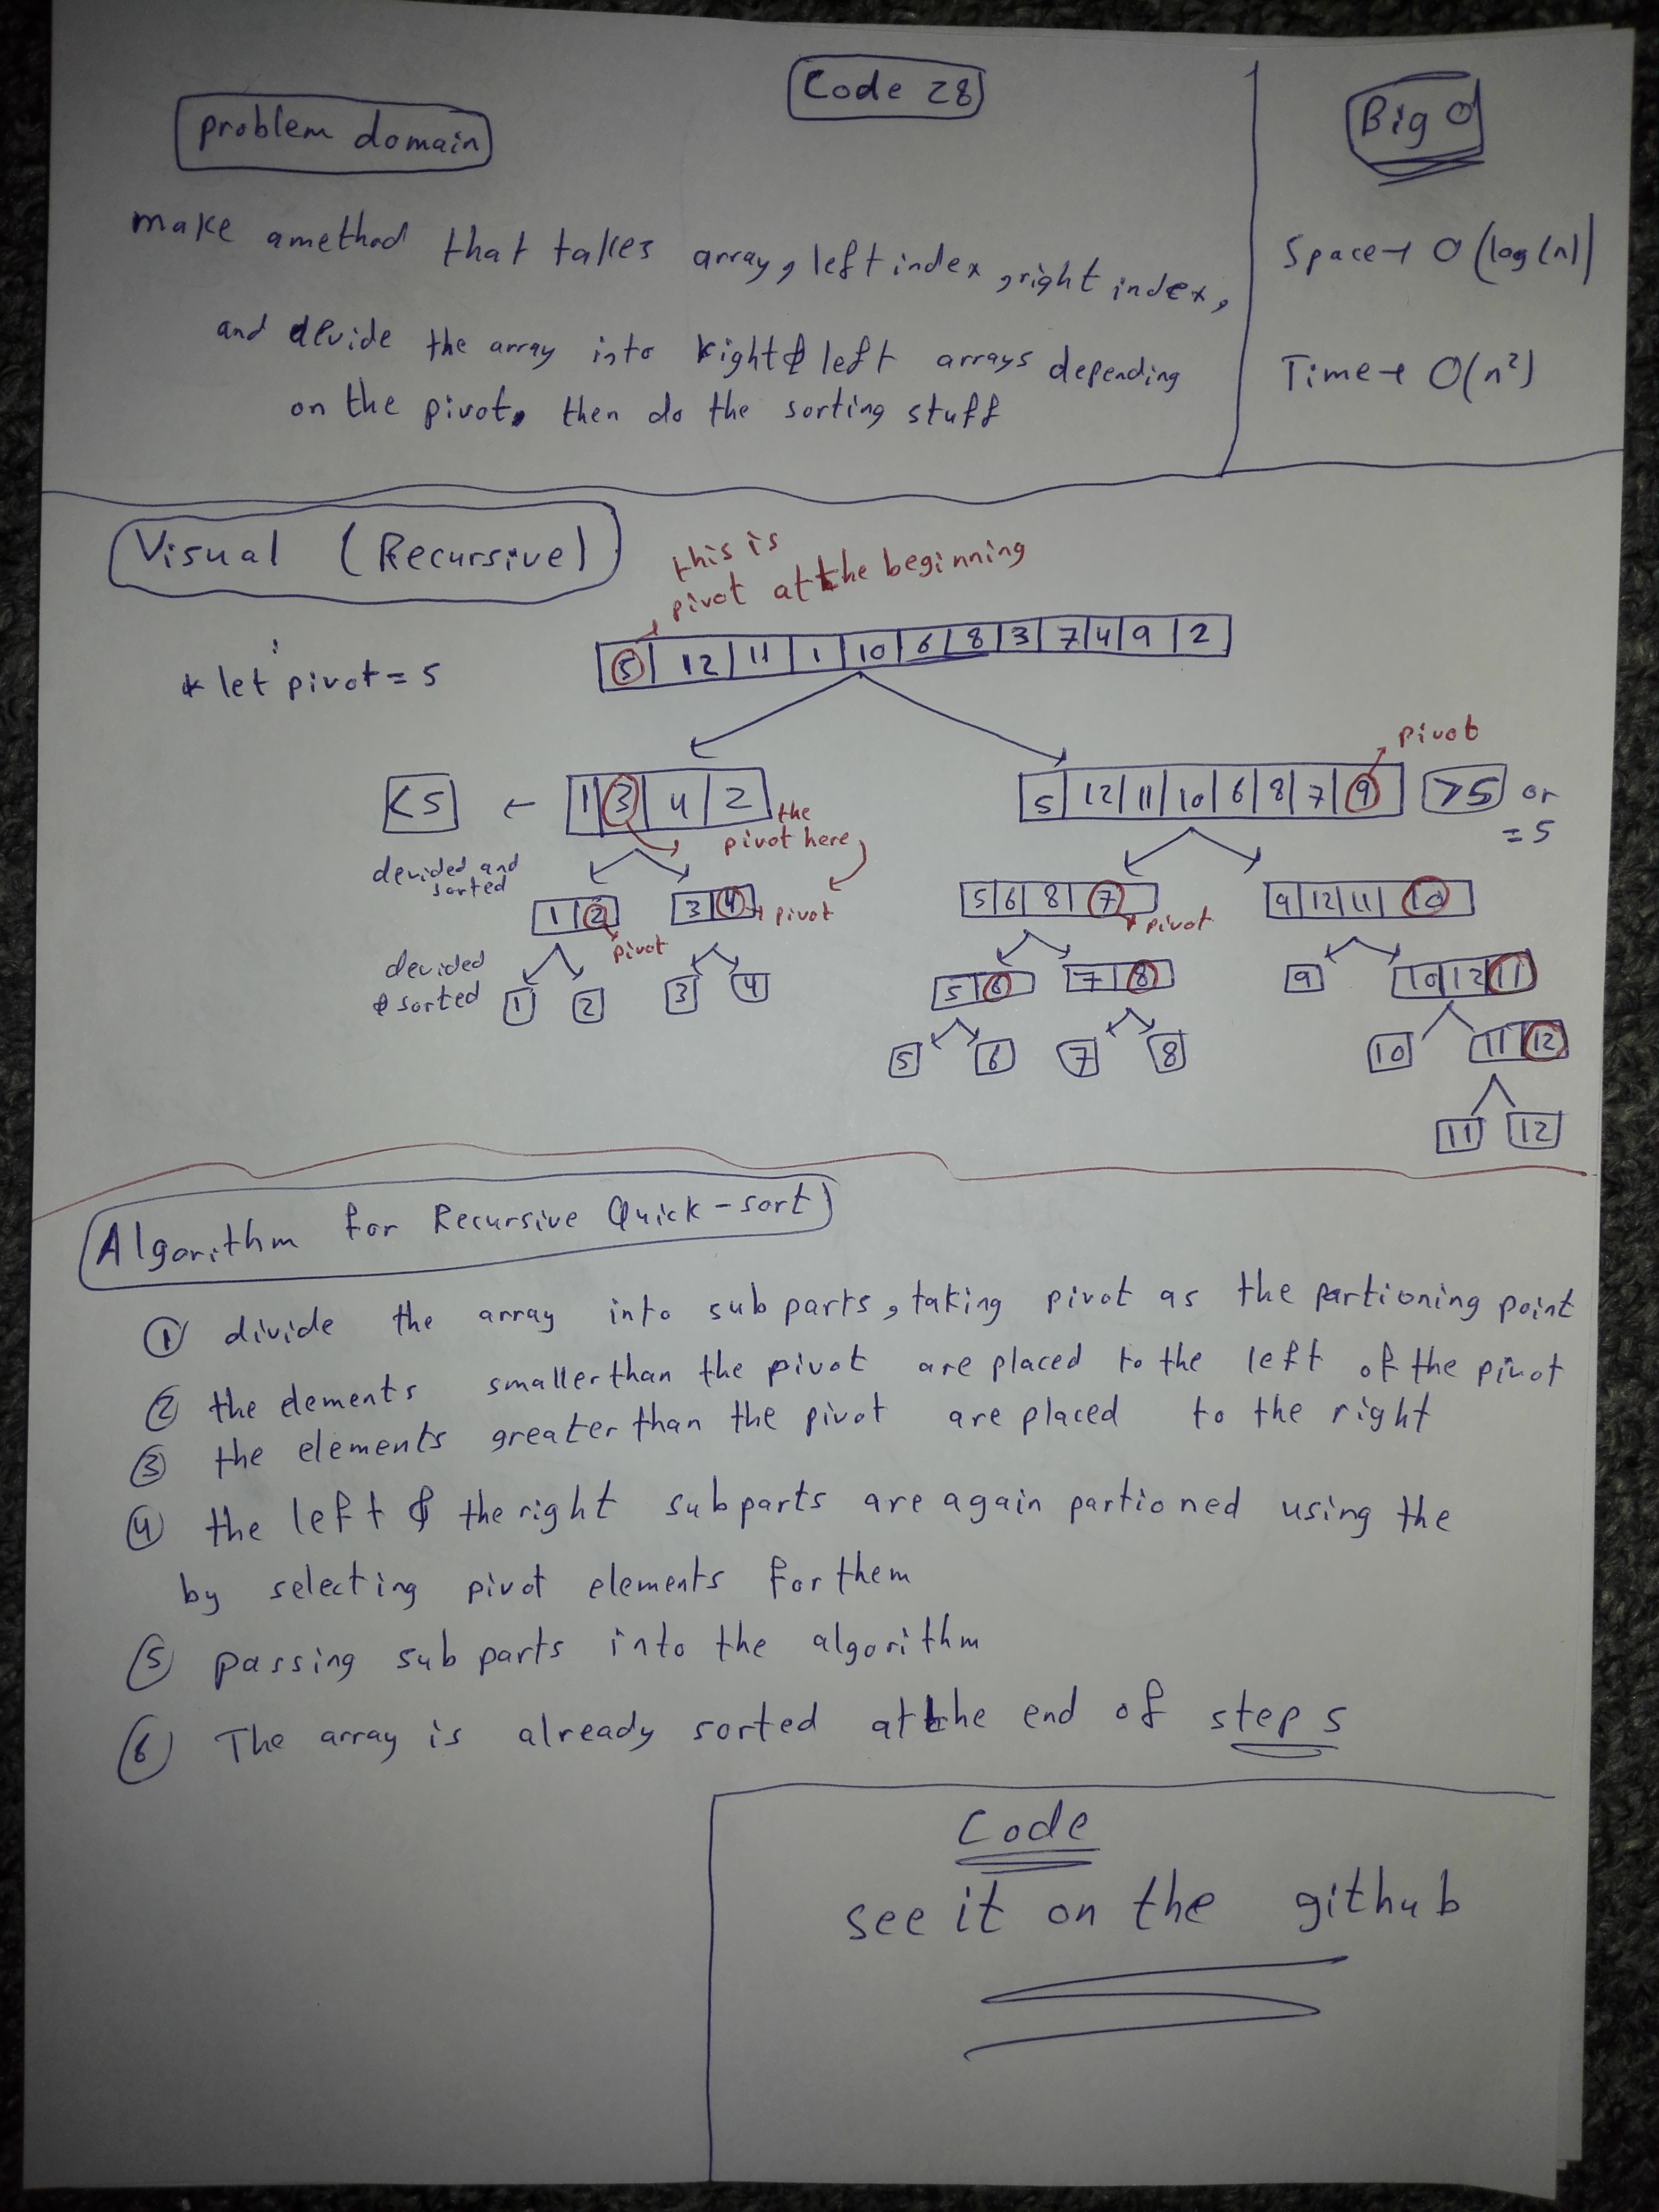 Code 28
problem domain
make amethod that takes array, left index, right index,
and devide the array into right & left arrays depending
on the pivot, then do the sorting stuff
Big O
Space → O(log(n)
Time → O(n²)
Visual (Recursive)
this is
pivot at the beginning
* let pivot = 5
5 12 11 1 10 6 8 3 7 4 9 2
pivot
<5 ← 1 3 4 2
5 12 11 10 6 8 7 9 >5 or
= 5
the
pivot here
devided and
sorted
1 2 3 4 pivot
5 6 8 7 9 12 11 10
pivot
pivot
devided
& sorted
1 2 3 4
5 6 7 8 9 10 12 11
5 6 7 8 10 11 12
11 12
Algorithm for Recursive Quick-sort
1 divide the array into sub parts, taking pivot as the partioning point
2 the elements smaller than the pivot are placed to the left of the pivot
3 the elements greater than the pivot are placed to the right
4 the left & the right subparts are again partioned using the
by selecting pivot elements for them
5 passing sub parts into the algorithm
6 The array is already sorted at the end of step 5
Code
see it on the github